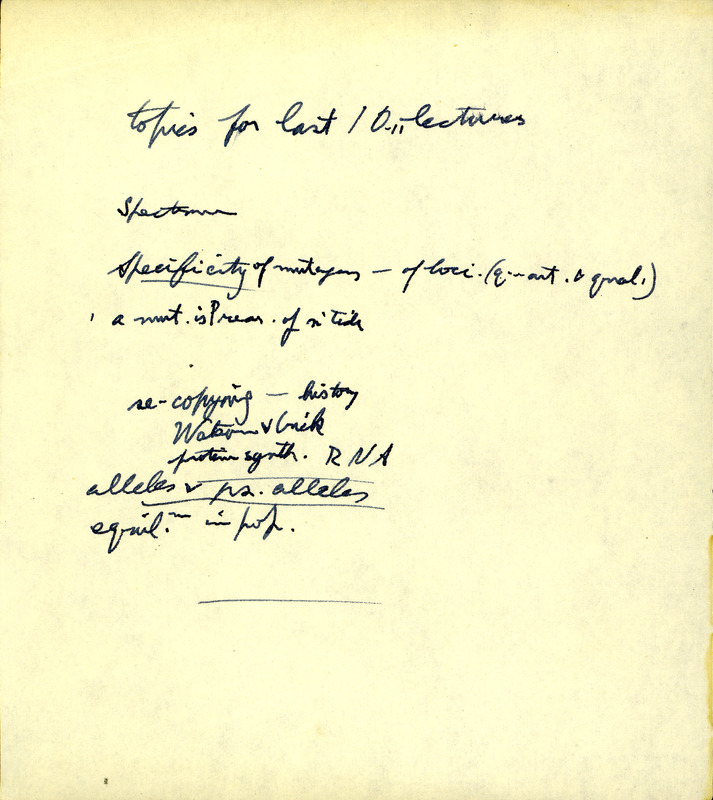 topics for last 10 lectures
Spectrum
Specificity of mutagens — of loci. (quant. & qual.)
a mut. is rear. of n'tide
re-copying — history
Watson & Crick
protein synth. RNA
alleles & ps. alleles
equil.m in pop.